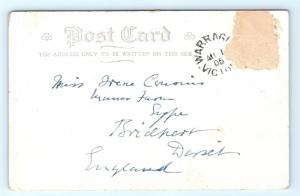 Post Card
THE ADDRESS ONLY TO BE WRITTEN ON THIS SIDE
WARRAGU
AU 1
05
VICTO
Miss Irene Cousins
Manor Farm
Eype
Bridport
Dorset
England